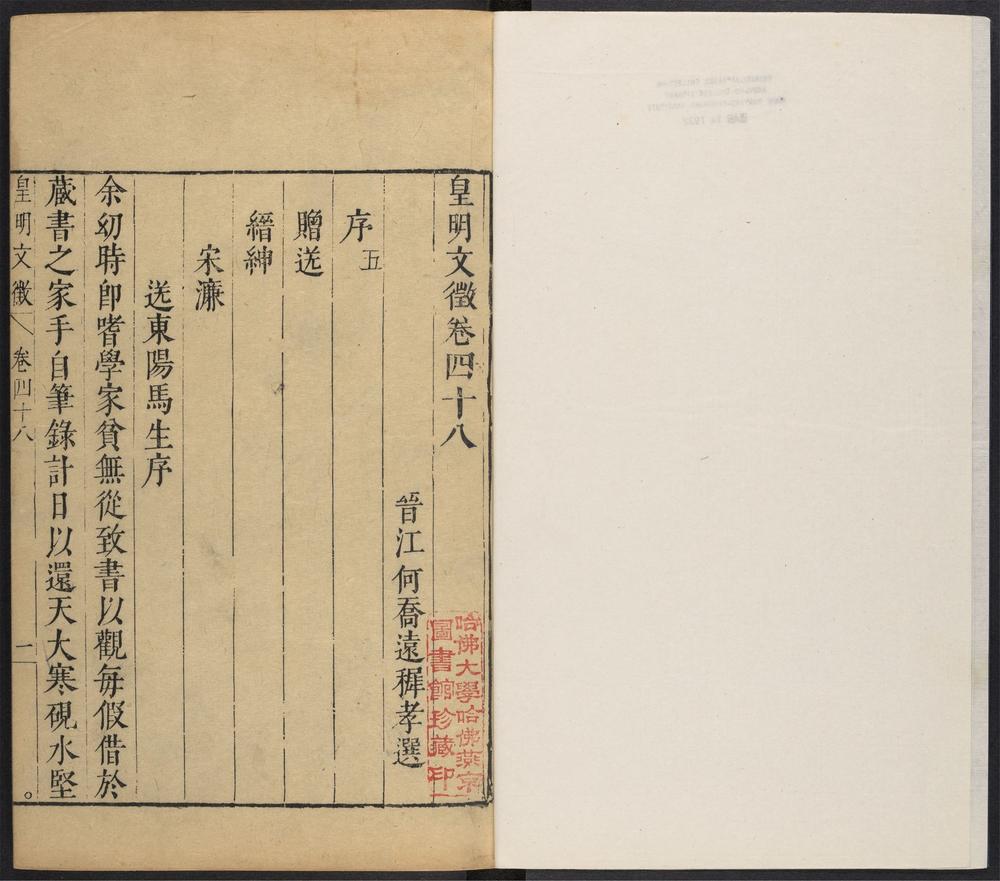 皇明文徵卷四十八
晉江何喬遠穉孝選
序五
贈送
縉紳
宋濂
送東陽馬生序
余幼時即嗜學家貧無從致書以觀每假借於
藏書之家手自筆錄計日以還天大寒硯水堅
皇明文徵 卷四十八 一
哈佛大學哈佛燕京
圖書館珍藏印